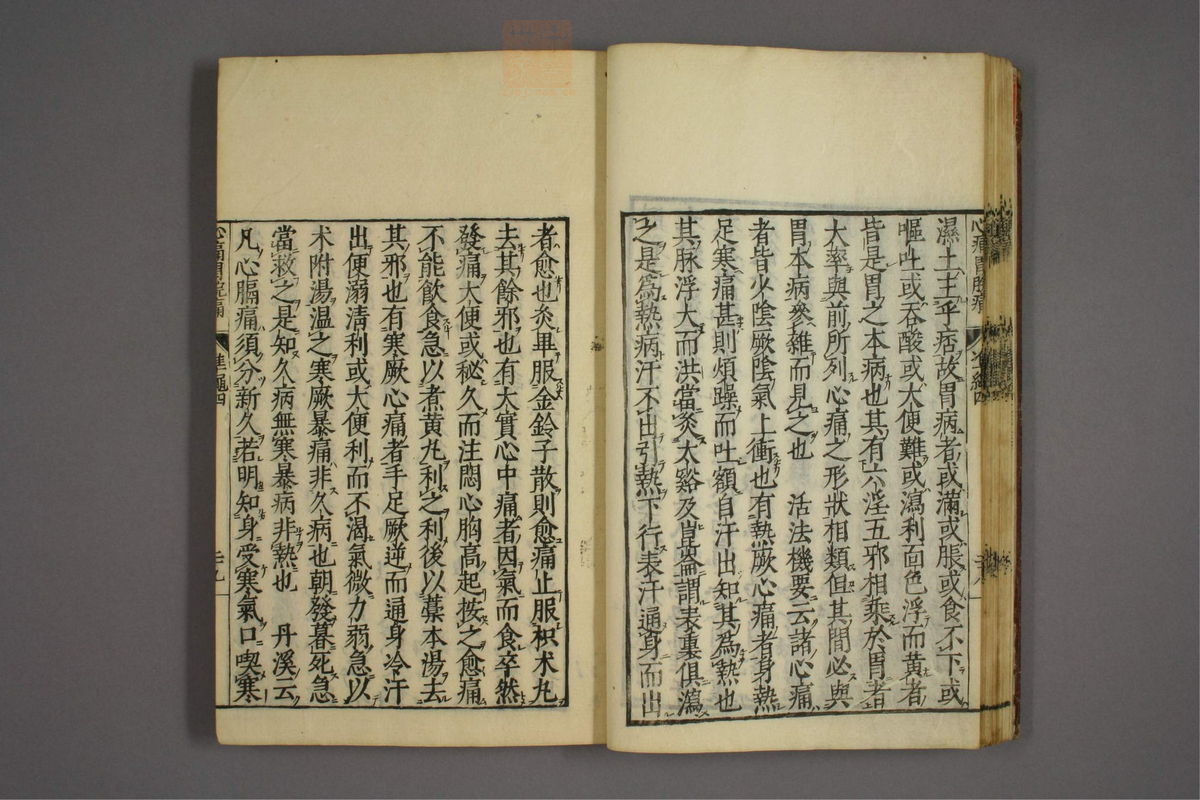 濕土主乎痞故胃病者或滿或脹或食不下或
嘔吐或吞酸或大便難或瀉利面色浮而黃者
皆是胃之本病也其有六淫五邪相乘於胃者
大率與前所列心痛之形狀相類但其間必與
胃本病參雜而見之也 活法機要云諸心痛
者皆少陰厥陰氣上衝也有熱厥心痛者身熱
足寒痛甚則煩躁而吐額自汗出知其為熱也
其脉浮大而洪當灸太谿及崑崙謂表裏俱瀉
之是為熱病汗不出引熱下行表汗通身而出
者愈也灸畢服金鈴子散則愈痛止服枳术丸
去其餘邪也有大實心中痛者因氣而食卒然
發痛大便或秘久而注悶心胸高起按之愈痛
不能飲食急以煮黃丸利之利後以藁本湯去
其邪也有寒厥心痛者手足厥逆而通身冷汗
出便溺清利或大便利而不渴氣微力弱急以
术附湯溫之寒厥暴痛非久病也朝發暮死急
當救之是知久病無寒暴病非熱也 丹溪云
凡心膈痛須分新久若明知身受寒氣口喫寒